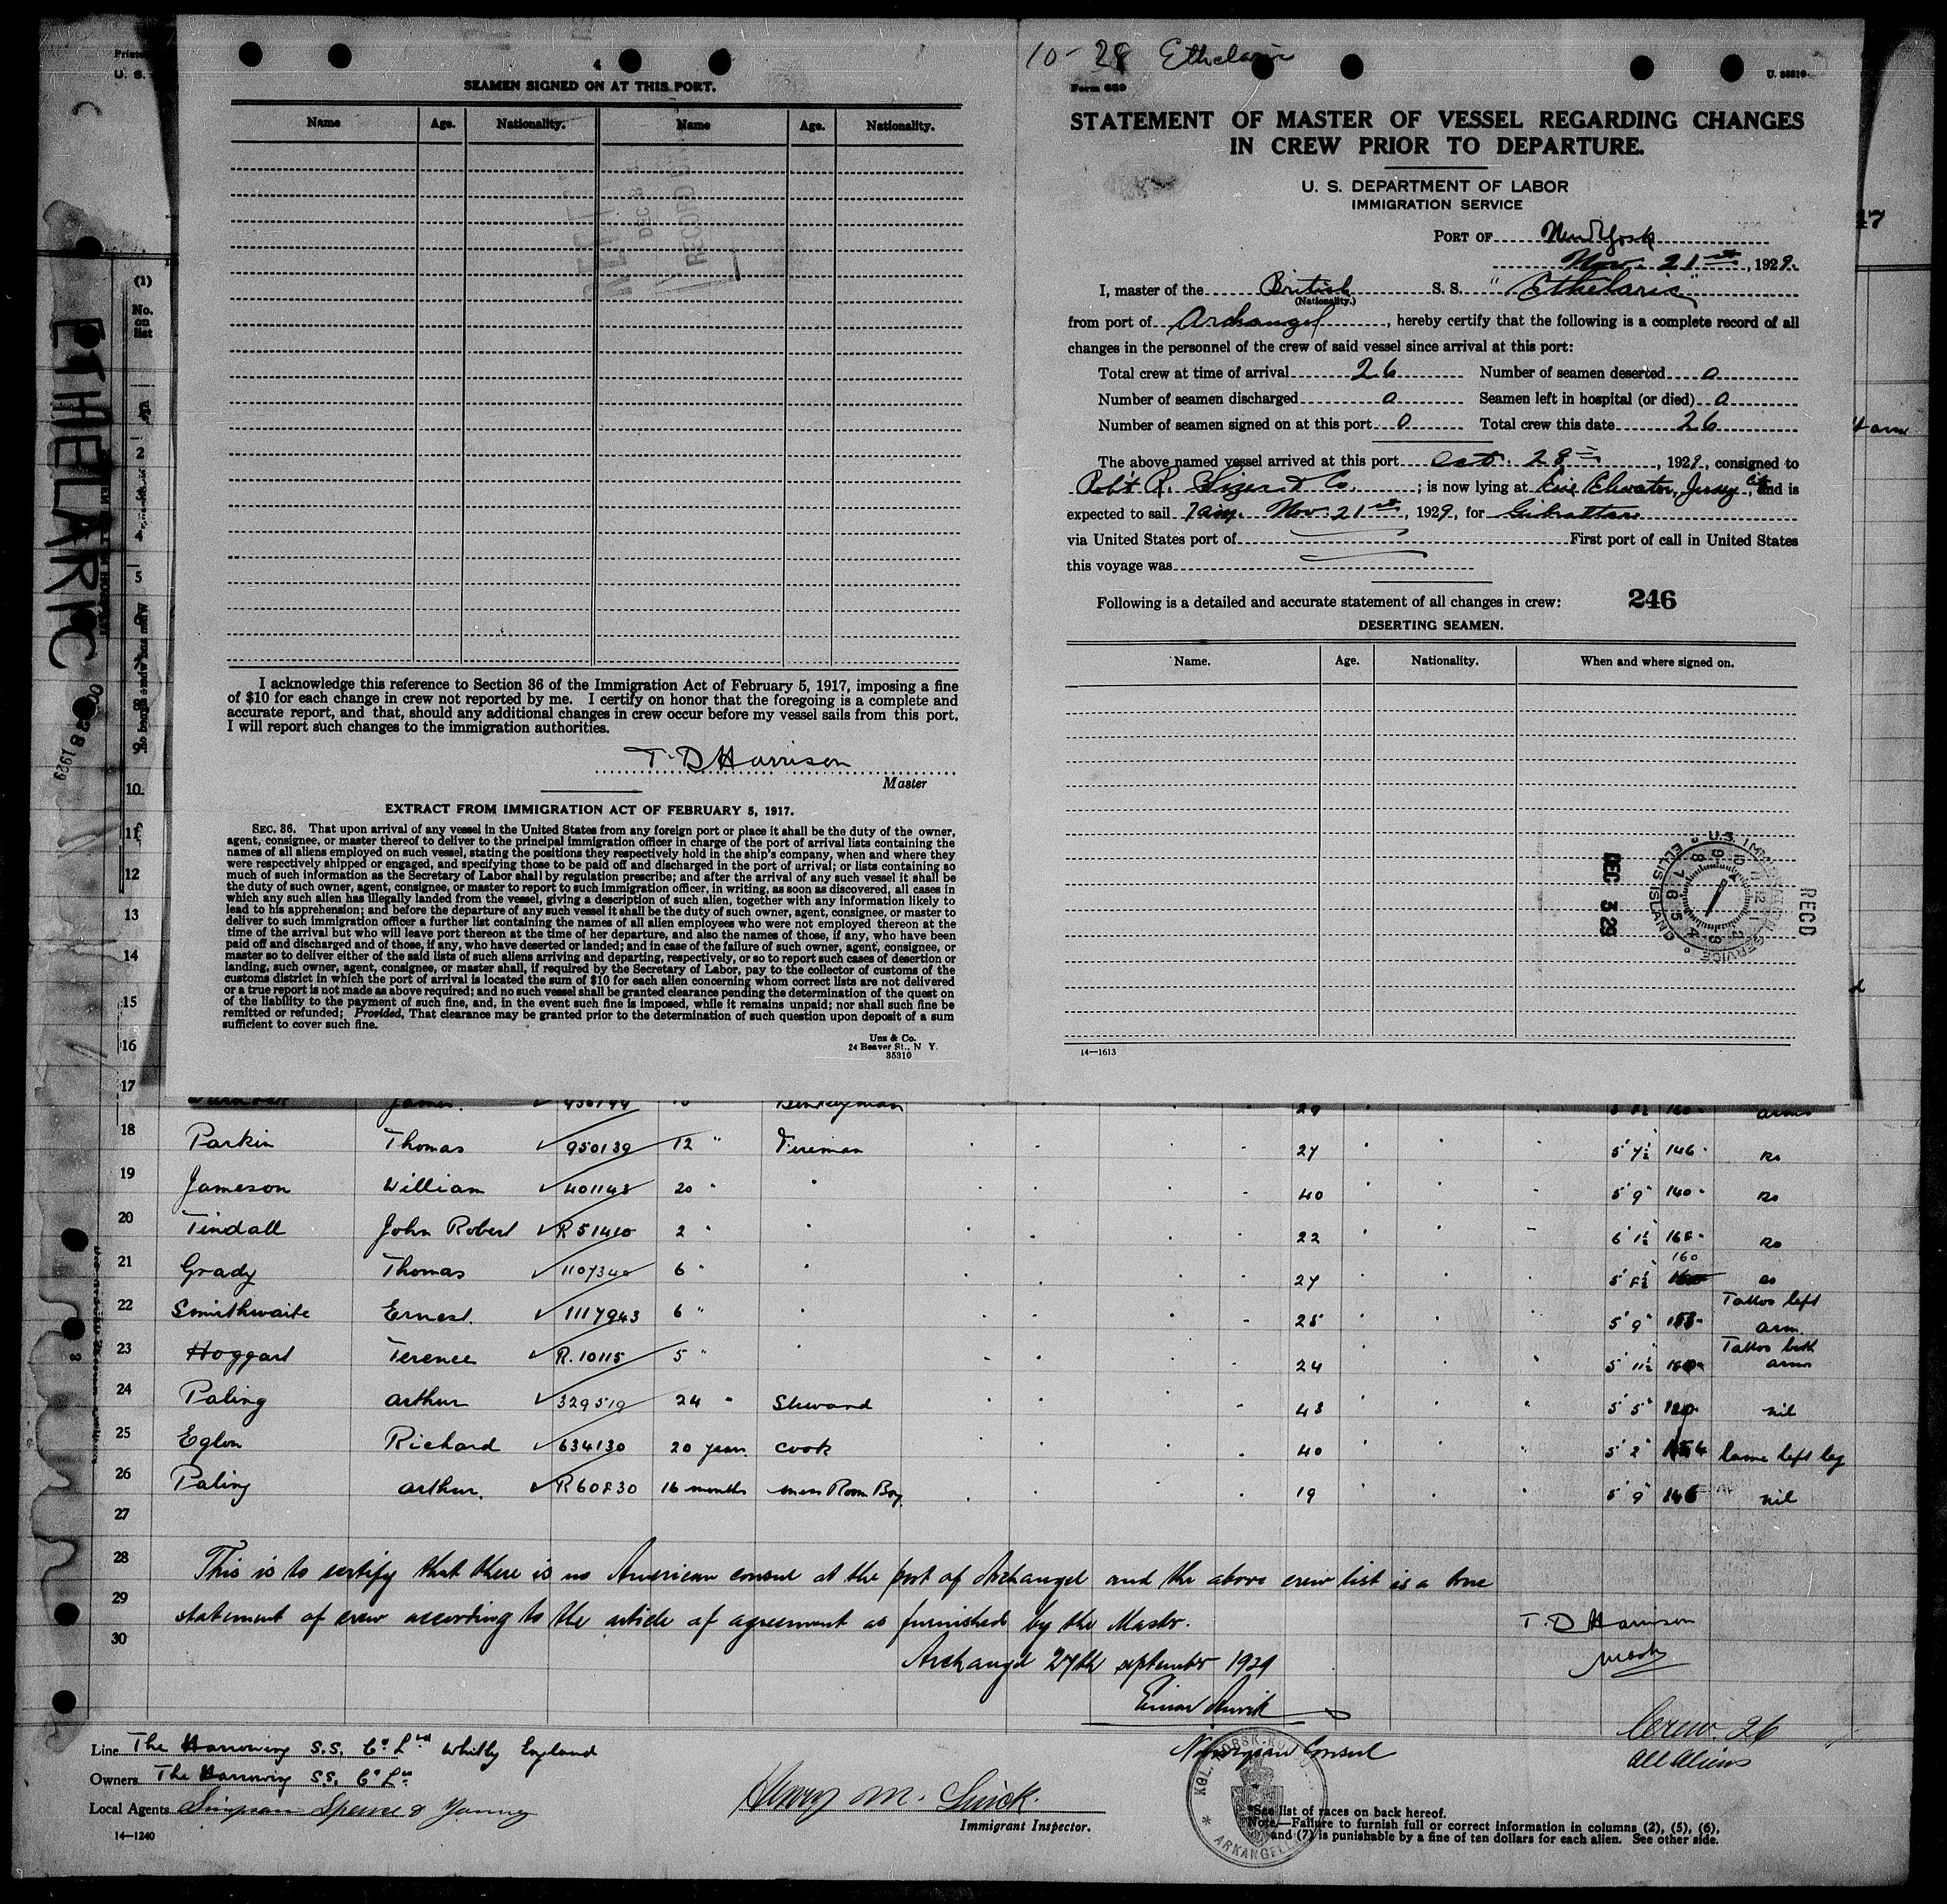 4
SEAMEN SIGNED ON AT THIS PORT.
Name Age. Nationality. Name Age. Nationality.
I acknowledge this reference to Section 36 of the Immigration Act of February 5, 1917, imposing a fine
of $10 for each change in crew not reported by me. I certify on honor that the foregoing is a complete and
accurate report, and that, should any additional changes in crew occur before my vessel sails from this port,
I will report such changes to the immigration authorities.
T. D Harrison
Master
EXTRACT FROM IMMIGRATION ACT OF FEBRUARY 5, 1917.
SEC. 36. That upon arrival of any vessel in the United States from any foreign port or place it shall be the duty of the owner,
agent, consignee, or master thereof to deliver to the principal immigration officer in charge of the port of arrival lists containing the
names of all aliens employed on such vessel, stating the positions they respectively hold in the ship's company, when and where they
were respectively shipped or engaged, and specifying those to be paid off and discharged in the port of arrival; or lists containing so
much of such information as the Secretary of Labor shall by regulation prescribe; and after the arrival of any such vessel it shall be
the duty of such owner, agent, consignee, or master to report to such immigration officer, in writing, as soon as discovered, all cases in
which any such alien has illegally landed from the vessel, giving a description of such alien, together with any information likely to
lead to his apprehension; and before the departure of any such vessel it shall be the duty of such owner, agent, consignee, or master to
deliver to such immigration officer a further list containing the names of all alien employees who were not employed thereon at the
time of the arrival but who will leave port thereon at the time of her departure, and also the names of those, if any, who have been
paid off and discharged and of those, if any, who have deserted or landed; and in case of the failure of such owner, agent, consignee, or
master so to deliver either of the said lists of such aliens arriving and departing, respectively, or so to report such cases of desertion or
landing, such owner, agent, consignee, or master shall, if required by the Secretary of Labor, pay to the collector of customs of the
customs district in which the port of arrival is located the sum of $10 for each alien concerning whom correct lists are not delivered
or a true report is not made as above required; and no such vessel shall be granted clearance pending the determination of the quest on
of the liability to the payment of such fine, and, in the event such fine is imposed, while it remains unpaid; nor shall such fine be
remitted or refunded; Provided, That clearance may be granted prior to the determination of such question upon deposit of a sum
sufficient to cover such fine.
Unz & Co.
24 Beaver St., N Y.
35310
10-28 Ethelaric
Form 689
STATEMENT OF MASTER OF VESSEL REGARDING CHANGES
IN CREW PRIOR TO DEPARTURE.
U. S. DEPARTMENT OF LABOR
IMMIGRATION SERVICE
PORT OF New York
Nov. 21st, 1929.
I, master of the British S. S. "Ethelaric"
(Nationality.)
from port of Archangel, hereby certify that the following is a complete record of all
changes in the personnel of the crew of said vessel since arrival at this port:
Total crew at time of arrival 26 Number of seamen deserted 0
Number of seamen discharged 0 Seamen left in hospital (or died) 0
Number of seamen signed on at this port 0 Total crew this date 26
The above named vessel arrived at this port Oct. 28th, 1929, consigned to
Rob't R. & Co.; is now lying at Erie Elevator, Jersey City, and is
expected to sail 7am. Nov. 21st, 1929, for Gibraltar
via United States port of First port of call in United States
this voyage was
Following is a detailed and accurate statement of all changes in crew: 246
DESERTING SEAMEN.
Name. Age. Nationality. When and where signed on.
RECD
DEC 3 29
U.S. IMMIGRATION SERVICE
ELLIS ISLAND
14—1613
ETHELARIC
OCT 28 1929
(1)
No. on list
2
4
5
9
10
11
12
13
14
15
16
17
18 Parkin Thomas 950139 12 " Fireman 27 5' 7½ 146 no
19 Jameson William 401148 20 " 40 5' 9" 140 no
20 Tindall John Robert R 51410 2 " 22 6' 1½ 168 no
21 Grady Thomas 1107340 6 " 27 5' 8½ 160 no
22 Smirthwaite Ernest. 1117943 6 " 25 5' 9" Tattoo left arm.
23 Hoggart Terence R. 10115 5 " 24 5' 11½ Tattoo both arms
24 Paling Arthur 329519 24 " Steward 48 5' 5" nil
25 Eglon Richard 634130 20 years Cook 40 5' 2" lame left leg
26 Paling Arthur. R60830 16 months Mess Room Boy 19 5' 9" nil
27
28 This is to certify that there is no American consul at the port of Archangel and the above crew list is a true
29 statement of crew according to the article of agreement as furnished by the Master.
30
T. D Harrison
Master
Archangel 27th september 1929
Norwegian Consul
Crew. 26
All Aliens
Line The Harrowing S.S. Co Ltd Whitby England
Owners The Harrowing S.S. Co Ltd
Local Agents Simpson Spence & Young
14—1240
Immigrant Inspector.
ARKANGEL
*See list of races on back hereof.
Note.—Failure to furnish full or correct information in columns (2), (5), (6),
and (7) is punishable by a fine of ten dollars for each alien. See other side.